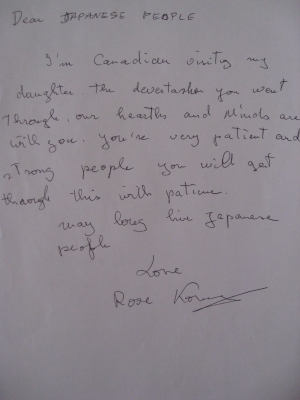 Dear JAPANESE PEOPLE
I'm Canadian visiting my
daughter the devertashen you went
through, our hearths and Minds are
with you. you're very patient and
strong people you will get
through this with patiene.
may long live Japanese
people
Love
Rose